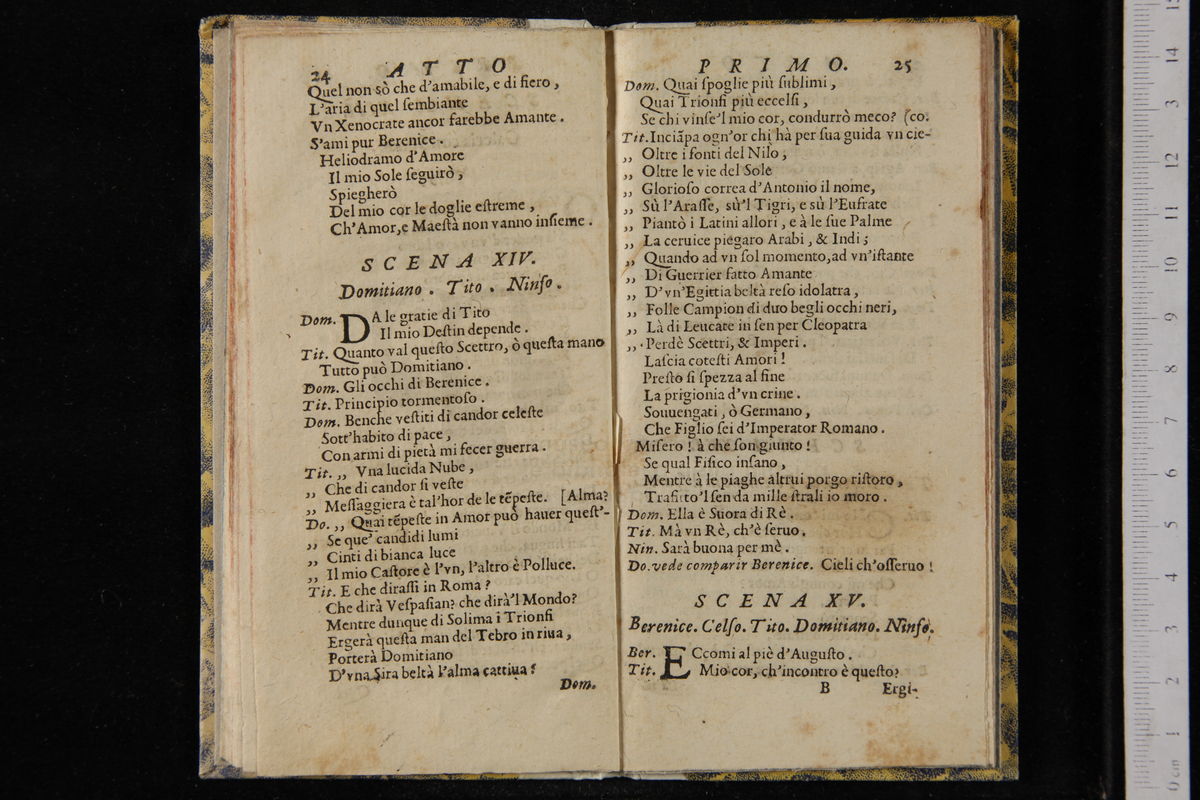 24 ATTO
Quel non sò che d'amabile, e di fiero,
L'aria di quel ſembiante
Vn Xenocrate ancor farebbe Amante.
S'ami pur Berenice.
Heliodramo d'Amore
Il mio Sole ſeguirò,
Spiegherò
Del mio cor le doglie eſtreme,
Ch'Amor, e Maeſtà non vanno inſieme.
SCENA XIV.
Domitiano. Tito. Ninfo.
Dom. DA le gratie di Tito
Il mio Deſtin depende.
Tit. Quanto val queſto Scettro, ò queſta mano
Tutto può Domitiano.
Dom. Gli occhi di Berenice.
Tit. Principio tormentoſo.
Dom. Benche veſtiti di candor celeſte
Sott'habito di pace,
Con armi di pietà mi fecer guerra.
Tit. ,, Vna lucida Nube,
,, Che di candor ſi veſte
,, Meſſaggiera è tal'hor de le tẽpeſte. [Alma?
Do. ,, Quai tẽpeſte in Amor può hauer queſt'-
,, Se que' candidi lumi
,, Cinti di bianca luce
,, Il mio Caſtore è l'vn, l'altro è Polluce.
Tit. E che diraſſi in Roma?
Che dirà Veſpaſian? che dirà'l Mondo?
Mentre dunque di Solima i Trionfi
Ergerà queſta man del Tebro in riua,
Porterà Domitiano
D'vna Sira beltà l'alma cattiua?
Dom.
PRIMO. 25
Dom. Quai ſpoglie più ſublimi,
Quai Trionfi più eccelſi,
Se chi vinſe'l mio cor, condurrò meco? (co.
Tit. Inciãpa ogn'or chi hà per ſua guida vn cie-
,, Oltre i fonti del Nilo,
,, Oltre le vie del Sole
,, Glorioſo correa d'Antonio il nome,
,, Sù l'Araſſe, sù'l Tigri, e sù l'Eufrate
,, Piantò i Latini allori, e à le ſue Palme
,, La ceruice piegaro Arabi, & Indi;
,, Quando ad vn ſol momento, ad vn'iſtante
,, Di Guerrier fatto Amante
,, D'vn'Egittia beltà reſo idolatra,
,, Folle Campion di duo begli occhi neri,
,, Là di Leucate in ſen per Cleopatra
,, Perdè Scettri, & Imperi.
Laſcia coteſti Amori!
Preſto ſi ſpezza al fine
La prigionia d'vn crine.
Souuengati, ò Germano,
Che Figlio ſei d'Imperator Romano.
Miſero! à che ſon giunto!
Se qual Fiſico inſano,
Mentre à le piaghe altrui porgo riſtoro,
Trafitto'l ſen da mille ſtrali io moro.
Dom. Ella è Suora di Rè.
Tit. Mà vn Rè, ch'è ſeruo.
Nin. Sarà buona per mè.
Do. vede comparir Berenice. Cieli ch'oſſeruo!
SCENA XV.
Berenice. Celſo. Tito. Domitiano. Ninfo.
Ber. ECcomi al piè d'Auguſto.
Tit. Mio cor, ch'incontro è queſto?
B Ergi-